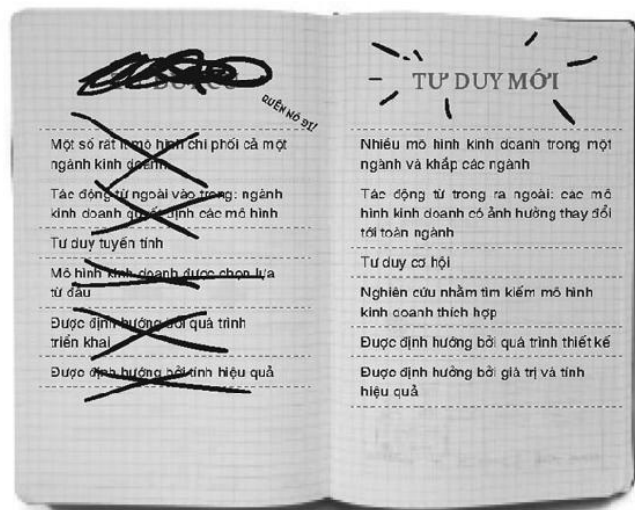 QUÊN NÓ ĐI!
Một số rất ít mô hình chi phối cả một
ngành kinh doanh
Tác động từ ngoài vào trong: ngành
kinh doanh quyết định các mô hình
Tư duy tuyến tính
Mô hình kinh doanh được chọn lựa
từ đầu
Được định hướng bởi quá trình
triển khai
Được định hướng bởi tính hiệu quả
TƯ DUY MỚI
Nhiều mô hình kinh doanh trong một
ngành và khắp các ngành
Tác động từ trong ra ngoài: các mô
hình kinh doanh có ảnh hưởng thay đổi
tới toàn ngành
Tư duy cơ hội
Nghiên cứu nhằm tìm kiếm mô hình
kinh doanh thích hợp
Được định hướng bởi quá trình thiết kế
Được định hướng bởi giá trị và tính
hiệu quả